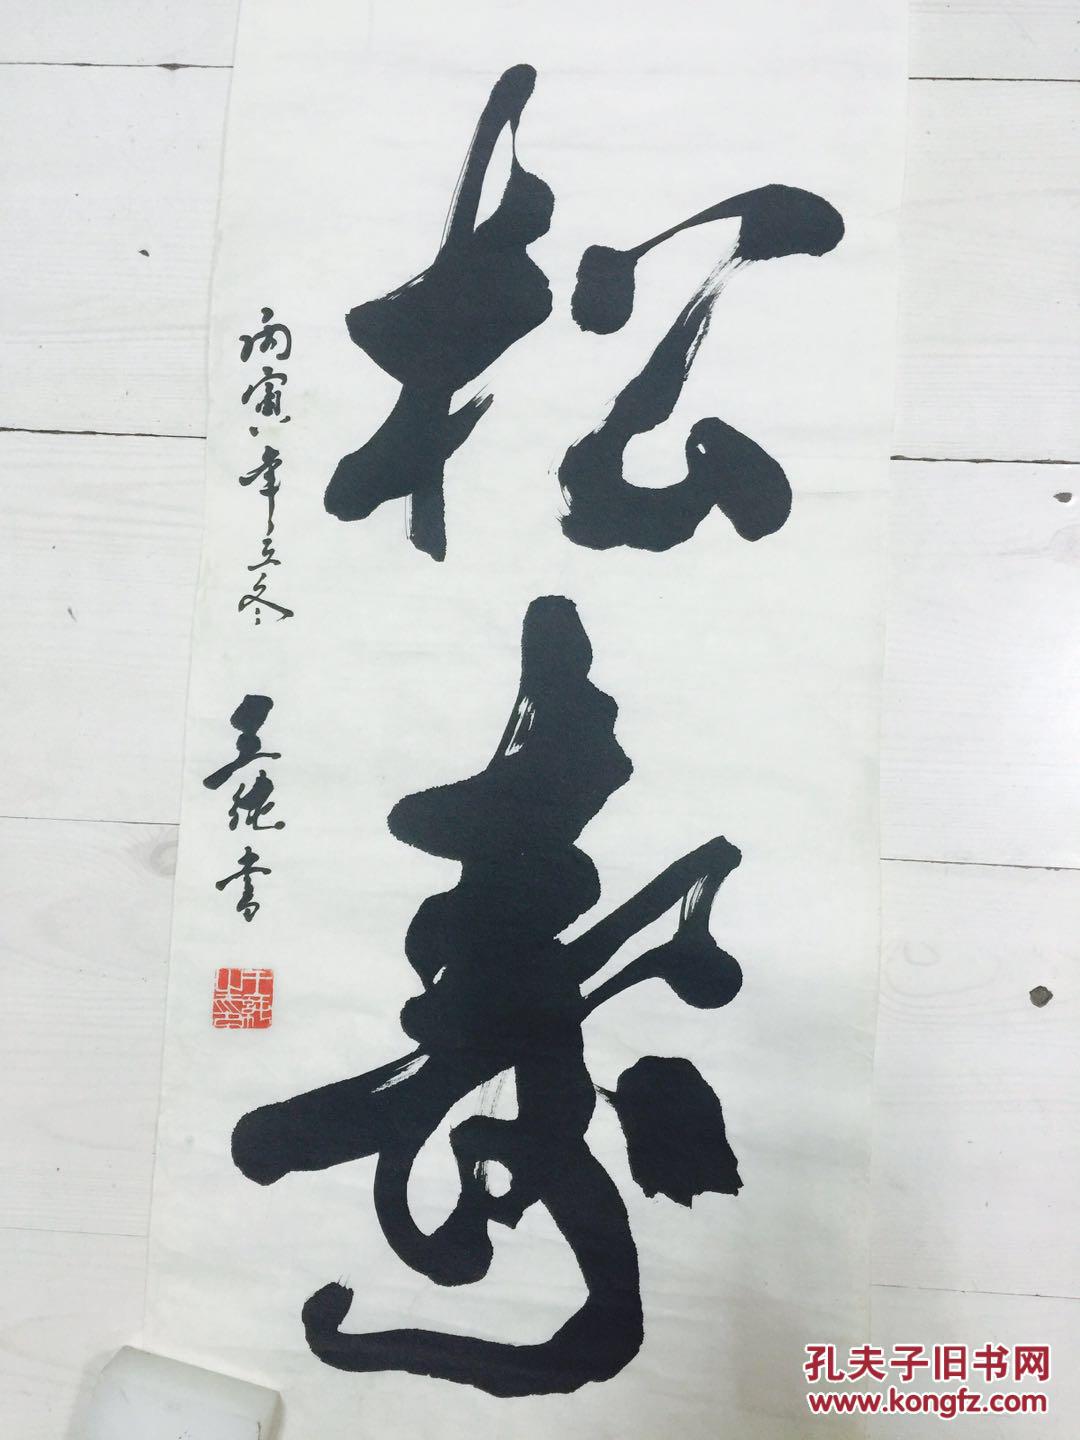 松寿
丙寅年立冬
书
孔夫子旧书网
www.kongfz.com